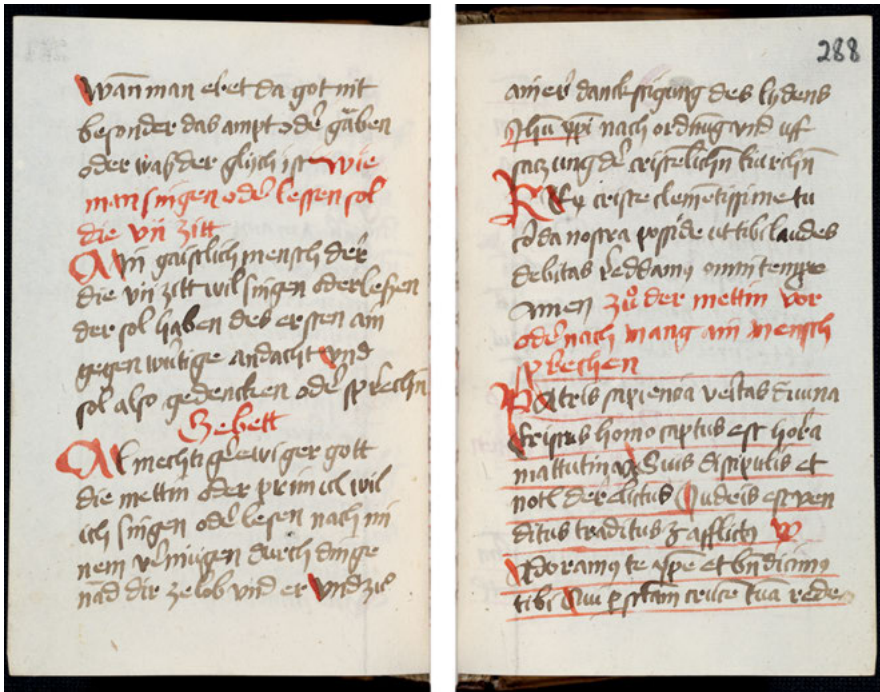 wan̄ man eret da got mit
besonder das ampt oder gāben
oder waß der glijch ist wie
man singen oder lessen sol
die vij zitt
Ain gaistlich mensch der
die vij zitt wil singen oder lesen
der sol haben des ersten ain
gegen würtige andacht Vnd
sol also gedencken oder sprechn̄
Gebett
Almechtig ewiger gott
die mettin oder prim ich wil
ich singen oder lesen nach mi
nem v̓mügen durch dinge
nād dir ze lob vnd er Vnd zu
288
ainer dancksagung des lydens
Jhū xp̄i nach ordnūg vnd uff
satzung der cristēlichn̄ kiirchn̄
Rex criste clemētissime tu
corda nostra posside ut tibi laudes
debitas reddamꝰ omni tempore
amen zů der mettin vor
oder nach mang ain mensch
sprechen
Patris sapiencia veritas diuina
Cristus homo captus est hora
mattutina A suis discipulis et
notis derelictus Judeis est ven
ditus traditus ⁊ afflictꝰ
Adoramꝰ te xp̄e et bn̄dicimꝰ
tibi Qui p̱ sc̄tam crucē tuā rede